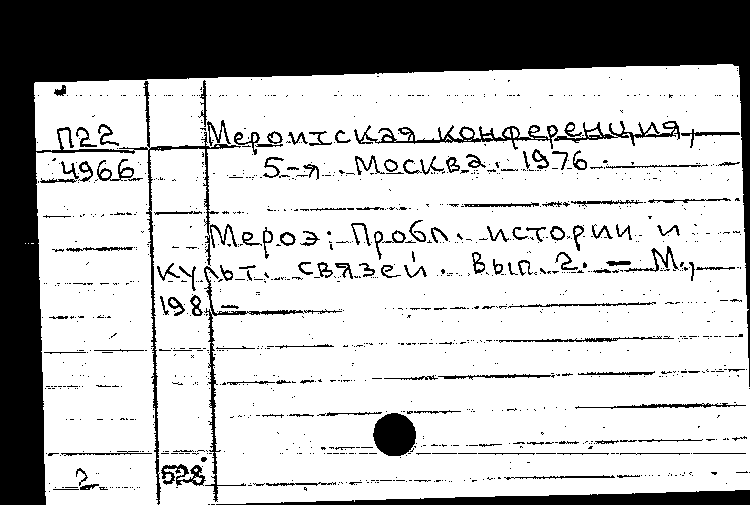 П22 Мероитская конференция,
4966 5-я. Москва. 1976.
Мероэ: Пробл. истории и
культ. связей. Вып. 2. — М.,
1981—
2 528